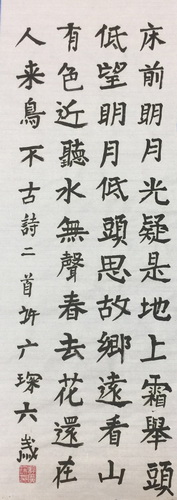 床前明月光疑是地上霜舉頭
低望明月低頭思故鄉遠看山
有色近聽水無聲春去花還在
人来鳥不古詩二首許广琛六歲